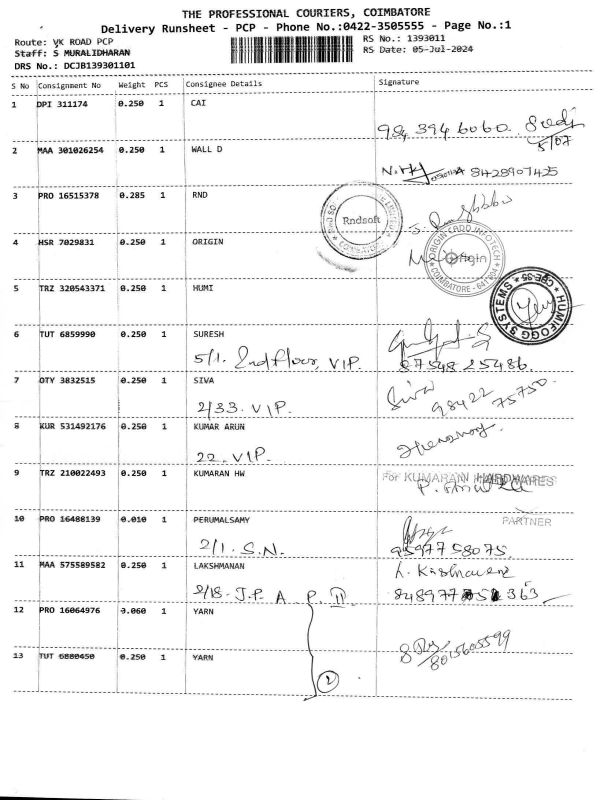 THE PROFESSIONAL COURIERS, COIMBATORE
Delivery Runsheet - PCP - Phone No.:0422-3505555 - Page No.:1
Route: VK ROAD PCP
RS No.: 1393011
Staff: S MURALIDHARAN
RS Date: 05-Jul-2024
DRS No.: DCJB139301101
S No Consignment No Weight PCS Consignee Details Signature
1 DPI 311174 0.250 1 CAI
984 394 6060
5/07
2 MAA 301026254 0.250 1 WALL D
8428907425
3 PRO 16515378 0.285 1 RND
Rndsoft
4 HSR 7029831 0.250 1 ORIGIN
ORIGIN CADD INFOTECH
Origin
COIMBATORE - 641 004
5 TRZ 320543371 0.250 1 HUMI
HUMIFOGG SYSTEMS
CBE-35
6 TUT 6859990 0.250 1 SURESH
5/1. 2nd floor, VIP.
87548 25486.
7 OTY 3832515 0.250 1 SIVA
2/33. VIP.
Siva
98422 75750.
8 KUR 531492176 0.250 1 KUMAR ARUN
22. VIP.
9 TRZ 210022493 0.250 1 KUMARAN HW
For KUMARAN HARDWARES
PARTNER
10 PRO 16488139 0.010 1 PERUMALSAMY
2/1. S.N.
9597758075.
11 MAA 575589582 0.250 1 LAKSHMANAN
9/18. J.P. A P. II
12 PRO 16064976 3.060 1 YARN
8015605599
13 TUT 6880450 0.250 1 YARN
2